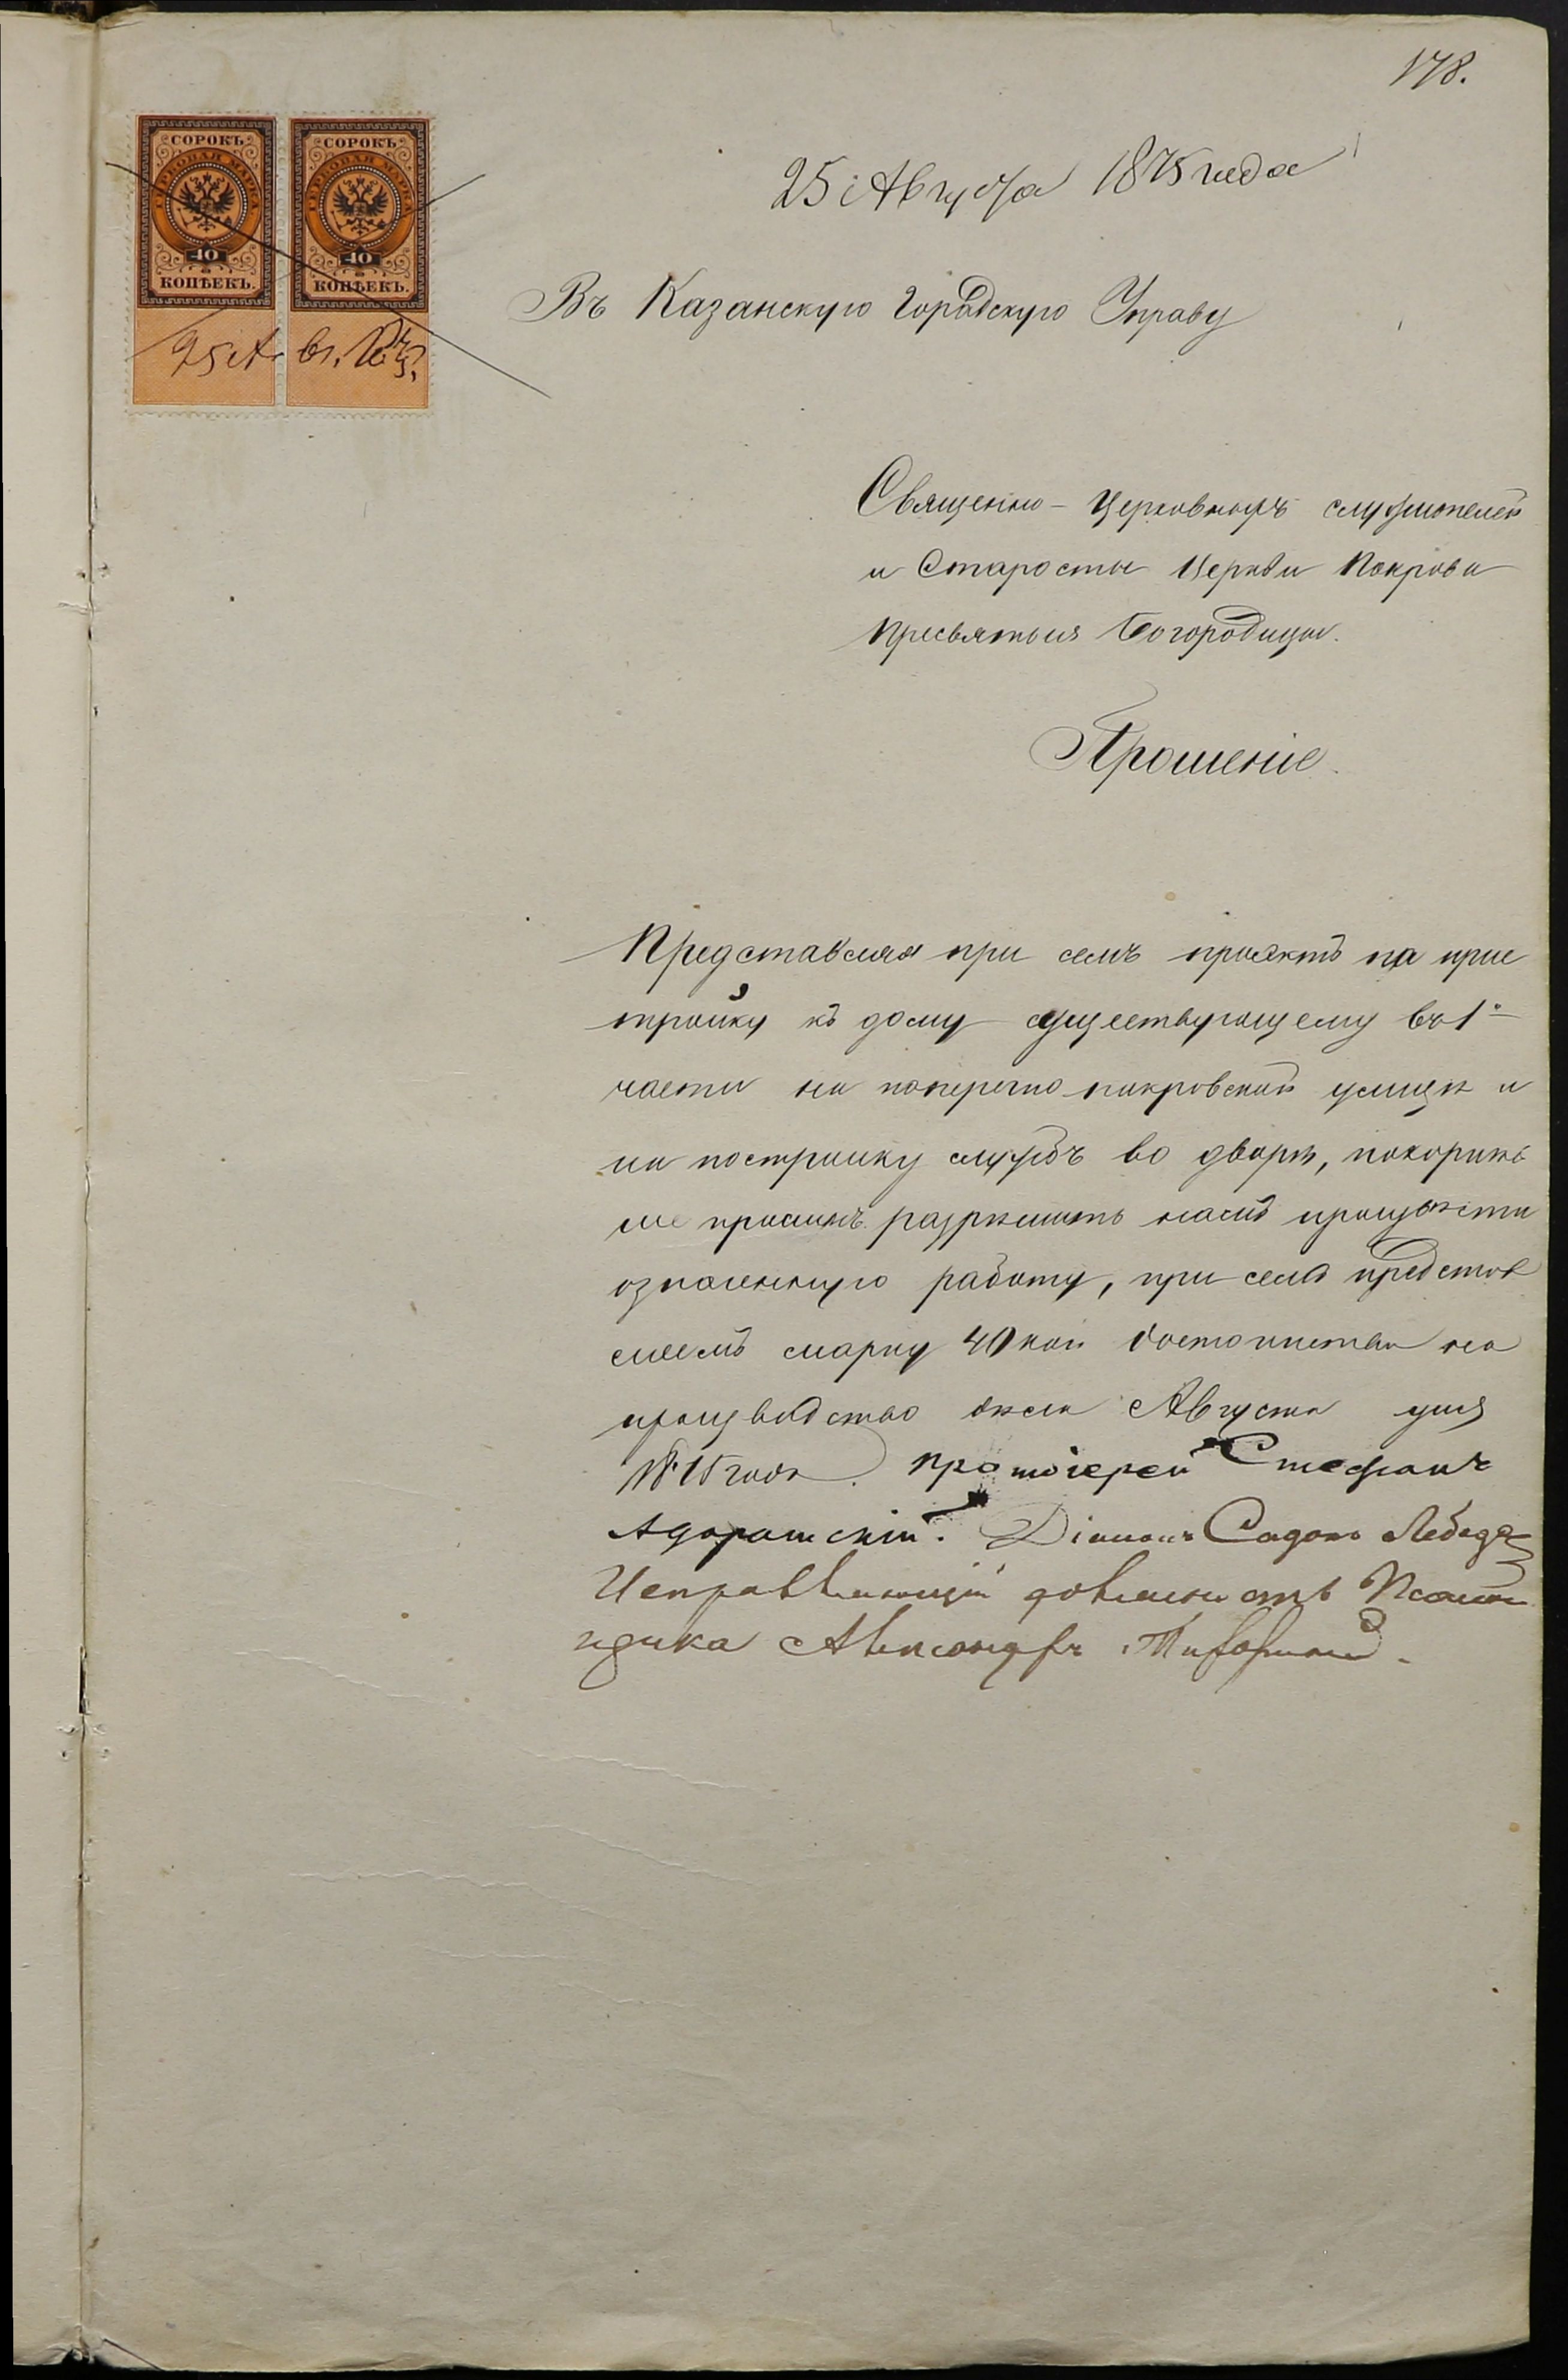 178.
СОРОКЪ СОРОКЪ
ГЕРБОВАЯ МАРКА ГЕРБОВАЯ МАРКА
40 40
КОПѢЕКЪ. КОПѢЕКЪ.
25 Ав. 75.
25 Августа 1875 года
Въ Казанскую Городскую Управу
Священно-Церковнослужителей
и Старосты Церкви Покрова
Пресвятыя Богородицы.
Прошеніе.
Представляя при семъ проэктъ на прис
тройку къ дому существующему въ 1й
части на поперечно покровской улицѣ и
на постройку службъ во дворѣ, покорнѣй
ше просимъ разрѣшить намъ произвести
означенную работу, при семъ представ
ляемъ марку 40 коп достоинства на
производство Августа дня
1875 года. Протоіерей Стефанъ
Адоратскій. Діаконъ Садокъ Лебедевъ
Исправляющій должность Псалом
щика Александръ